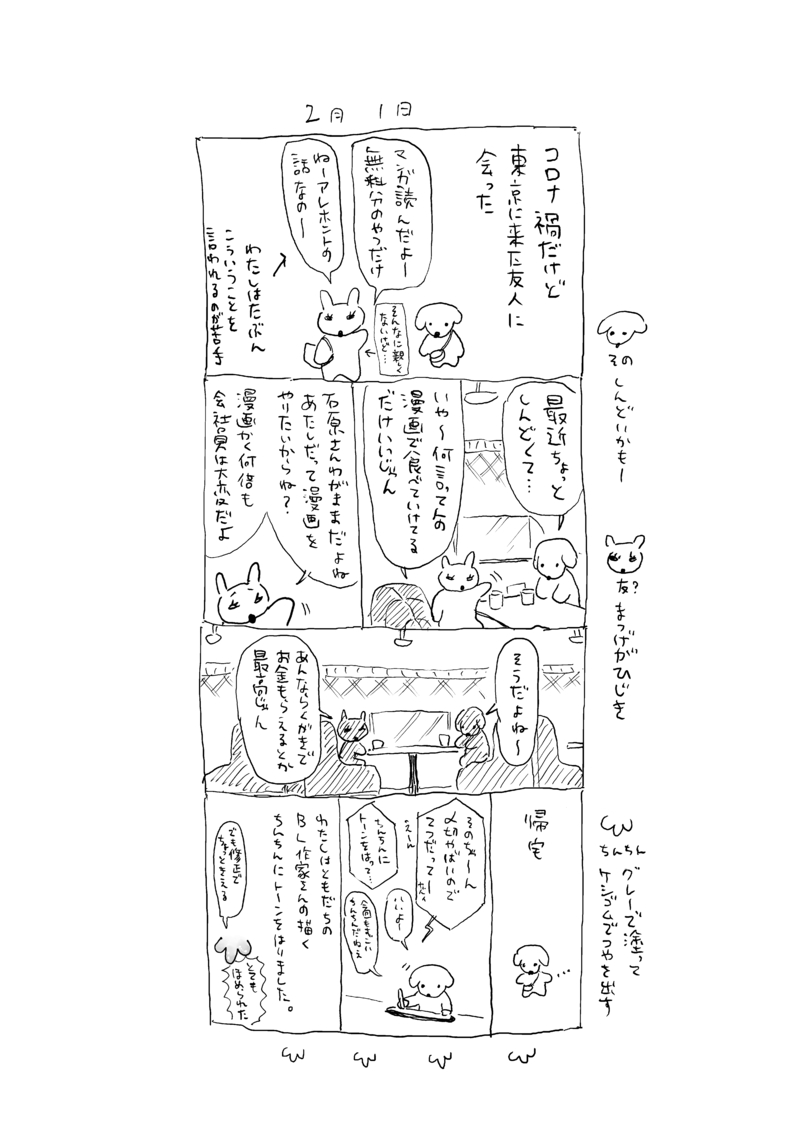 2月 1日
コロナ禍だけど
東京に来た友人に
会った
マンガ読んだよー
無料分のやつだけ
ねーアレホントの
話なのー
そんなに親しく
ないけど…
わたしはたぶん
こういうことを
言われるのが苦手
その しんどいかもー
最近ちょっと
しんどくて…
いや〜何言ってんの
漫画で食べていけてる
だけいいじゃん
石原さんわがままだよね
あたしだって漫画を
やりたいからね?
漫画かく何倍も
会社員は大変だよ
友? まつげがひじき
そうだよね〜
あんならくがきで
お金もらえるとか
最高じゃん
帰宅
…
そのちゃ〜ん
〆切やばいので
てつだってー
うえーん
ちんちんに
トーンをはって…
いいよー
今回もすごい
ちんちんだねぇ
わたしはともだちの
BL作家さんの描く
ちんちんにトーンをはりました。
でも修正で
ちょっときえる
とても
ほめられた
ちんちん グレーで塗って
ケシゴムでつやを出す